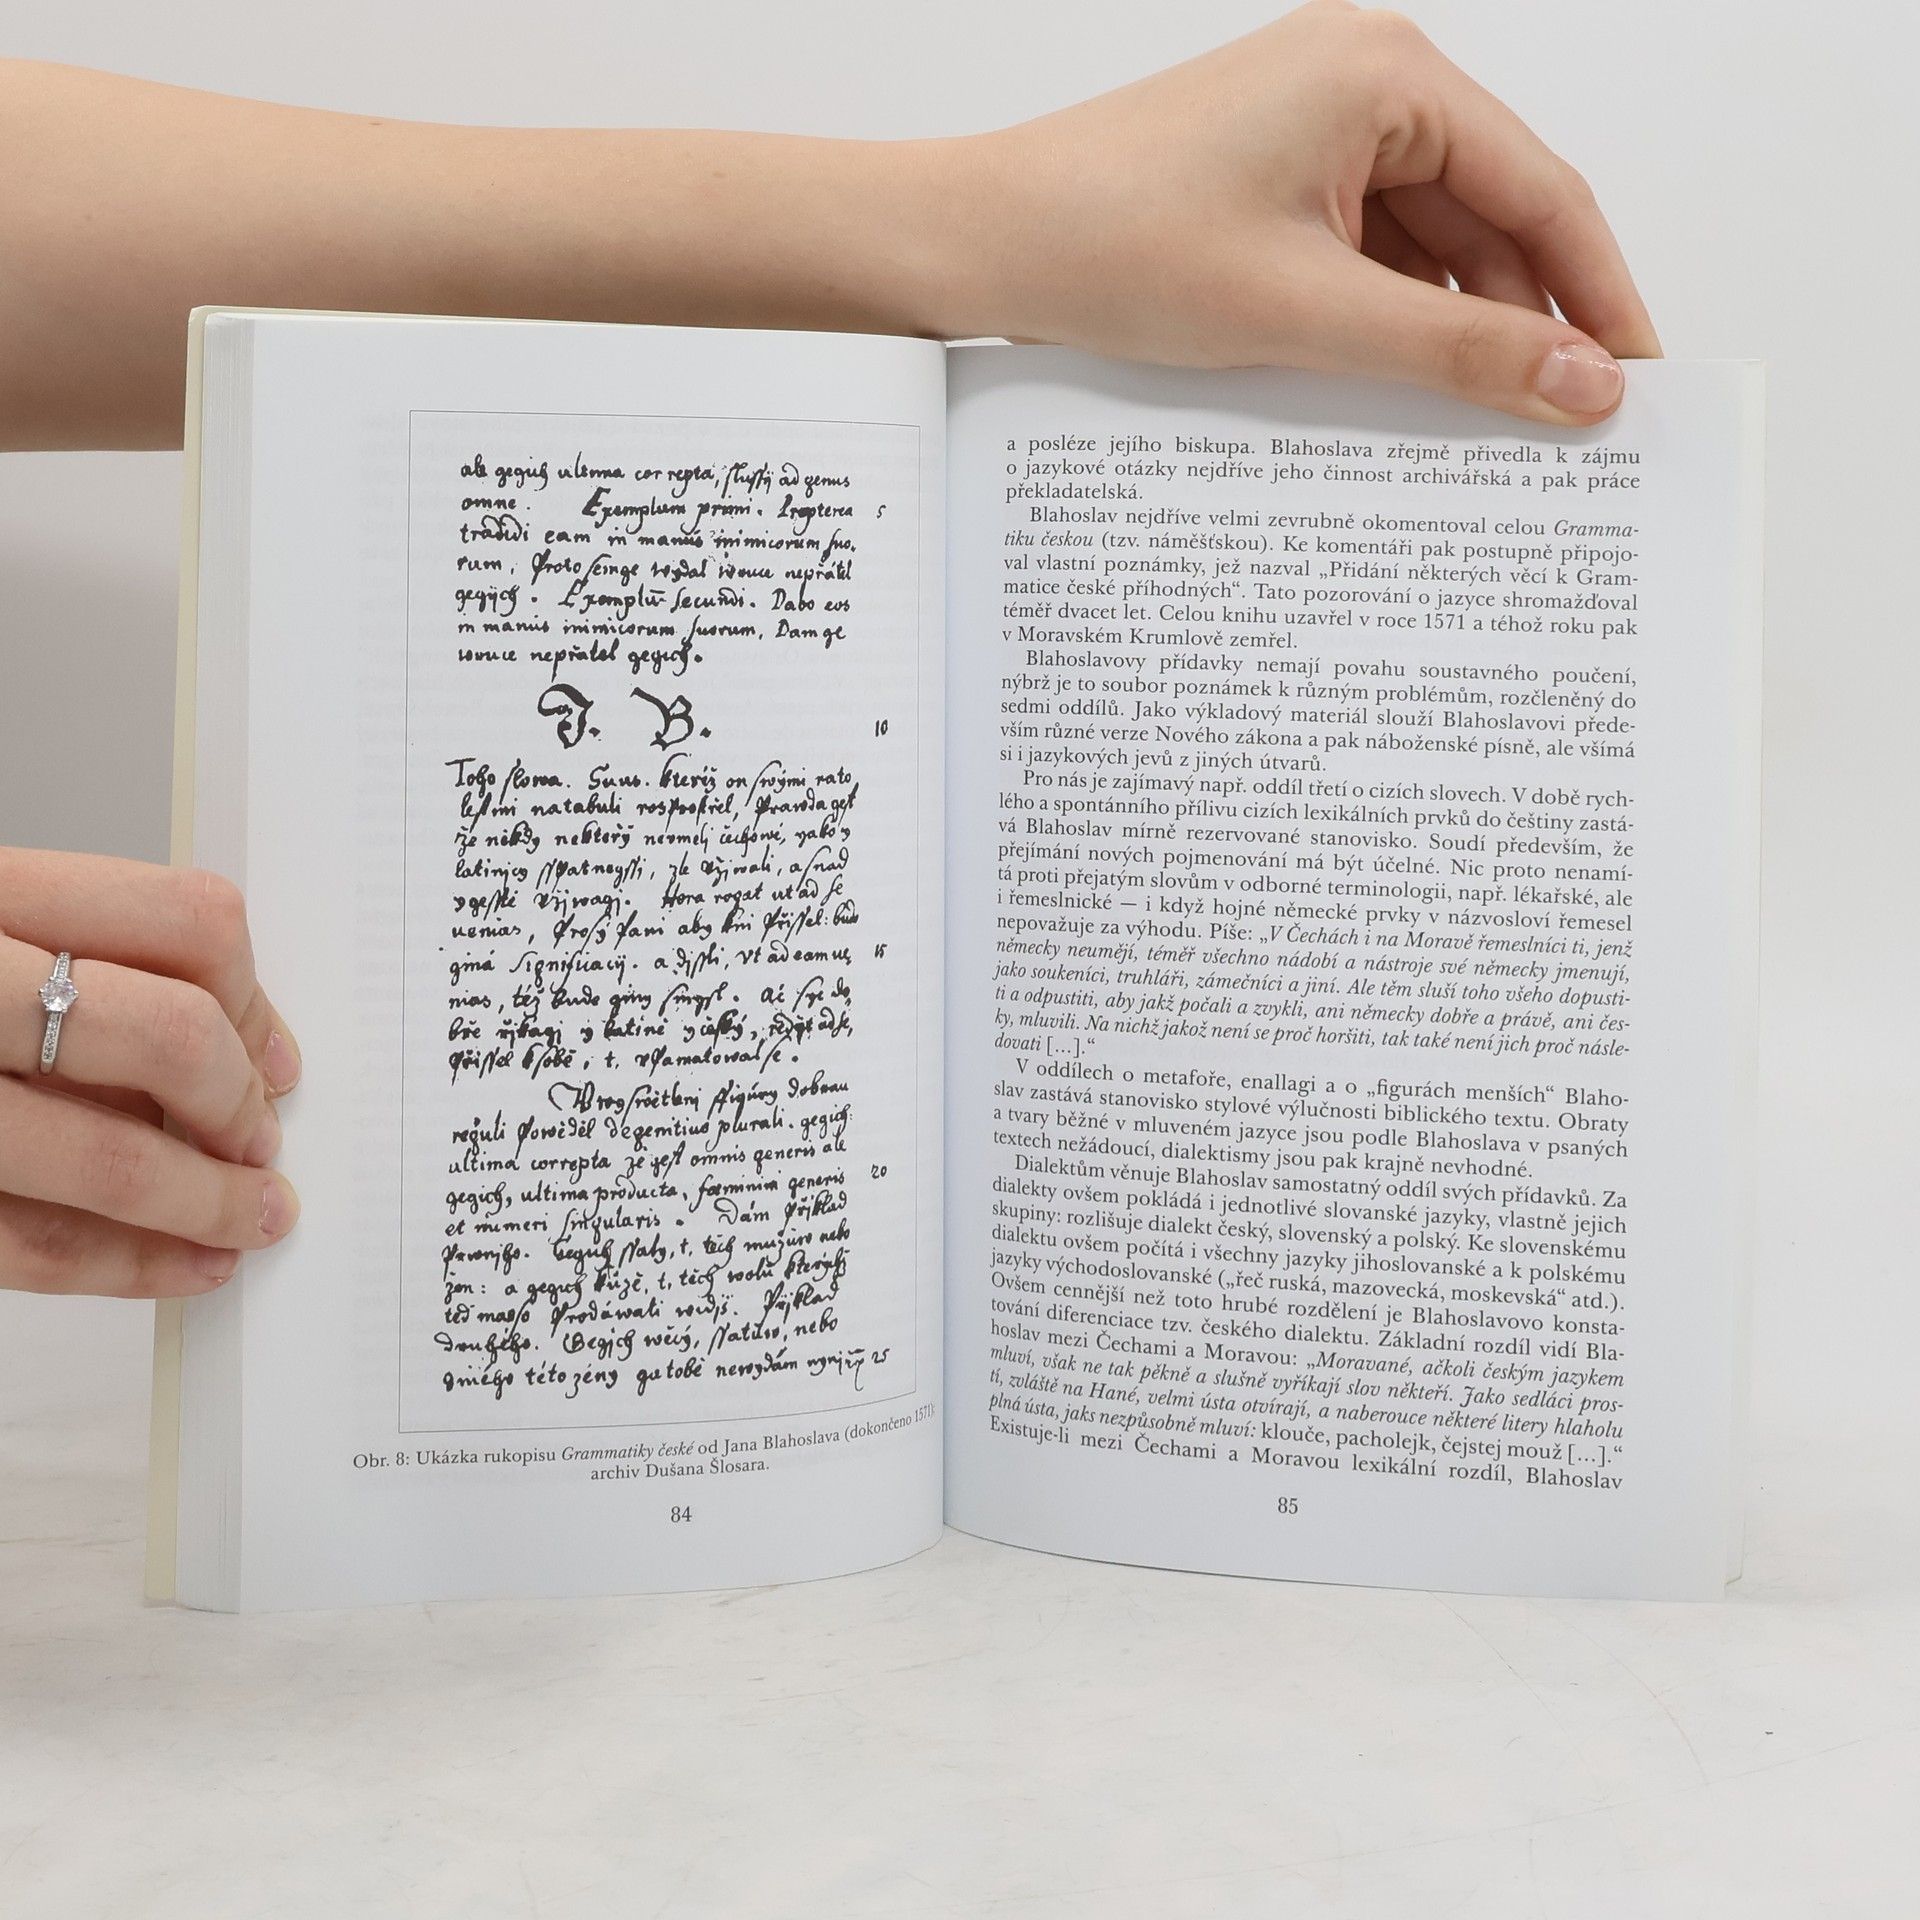 omne. Exemplum primi. Propterea 5
tradidi eam in manus inimicorum suo,
rum,
in manus inimicorum suorum, Dam ge
nepřátel gegich.
J. B. 10
Toho slowa. kteríž on swými rato
lestmi natabuli rospostřel, Prawda gest
že někdy někteřý neuměli čechowé, yako y
zle vžjwali, a snad
y gesstě vžjwagj. Hora rogat ut ad se
uenias, Prosý Pani aby kni Přissel: bud
15
nias, též bude giný smysl.
Přissel ksobě, t. vPamatowal se.
reguli Powěděl de genitiuo plurali. gegich
ultima correpta že gest omnis generis ale
gegich, ultima producta, fœminini generis 20
et numeri singularis. Dám Přiklad
Prwnjho. t. těch mužůw nebo
žen: a gegich kůže, t. těch wolů kterých
teď maso Prodáwati widjš. Přjklad
druhého. Gegich wěcý, ssatůw, nebo
této ženy ga tobě newydám 25
Obr. 8: Ukázka rukopisu Grammatiky české od Jana Blahoslava (dokončeno 1571);
archiv Dušana Šlosara.
84
a posléze jejího biskupa. Blahoslava zřejmě přivedla k zájmu
o jazykové otázky nejdříve jeho činnost archivářská a pak práce
překladatelská.
Blahoslav nejdříve velmi zevrubně okomentoval celou Gramma-
tiku českou (tzv. náměšťskou). Ke komentáři pak postupně připojo-
val vlastní poznámky, jež nazval „Přidání některých věcí k Gram-
matice české příhodných“. Tato pozorování o jazyce shromažďoval
téměř dvacet let. Celou knihu uzavřel v roce 1571 a téhož roku pak
v Moravském Krumlově zemřel.
Blahoslavovy přídavky nemají povahu soustavného poučení,
nýbrž je to soubor poznámek k různým problémům, rozčleněný do
sedmi oddílů. Jako výkladový materiál slouží Blahoslavovi přede-
vším různé verze Nového zákona a pak náboženské písně, ale všímá
si i jazykových jevů z jiných útvarů.
Pro nás je zajímavý např. oddíl třetí o cizích slovech. V době rych-
lého a spontánního přílivu cizích lexikálních prvků do češtiny zastá-
vá Blahoslav mírně rezervované stanovisko. Soudí především, že
přejímání nových pojmenování má být účelné. Nic proto nenamí-
tá proti přejatým slovům v odborné terminologii, např. lékařské, ale
i řemeslnické — i když hojné německé prvky v názvosloví řemesel
nepovažuje za výhodu. Píše: „V Čechách i na Moravě řemeslníci ti, jenž
německy neumějí, téměř všechno nádobí a nástroje své německy jmenují,
jako soukeníci, truhláři, zámečníci a jiní. Ale těm sluší toho všeho dopusti-
ti a odpustiti, aby jakž počali a zvykli, ani německy dobře a právě, ani čes-
ky, mluvili. Na nichž jakož není se proč horšiti, tak také není jich proč násle-
dovati [...].“
V oddílech o metafoře, enallagi a o „figurách menších“ Blaho-
slav zastává stanovisko stylové výlučnosti biblického textu. Obraty
a tvary běžné v mluveném jazyce jsou podle Blahoslava v psaných
textech nežádoucí, dialektismy jsou pak krajně nevhodné.
Dialektům věnuje Blahoslav samostatný oddíl svých přídavků. Za
dialekty ovšem pokládá i jednotlivé slovanské jazyky, vlastně jejich
skupiny: rozlišuje dialekt český, slovenský a polský. Ke slovenskému
dialektu ovšem počítá i všechny jazyky jihoslovanské a k polskému
jazyky východoslovanské („řeč ruská, mazovecká, moskevská“ atd.).
Ovšem cennější než toto hrubé rozdělení je Blahoslavovo konsta-
tování diferenciace tzv. českého dialektu. Základní rozdíl vidí Bla-
hoslav mezi Čechami a Moravou: „Moravané, ačkoli českým jazykem
mluví, však ne tak pěkně a slušně vyříkají slov někteří. Jako sedláci pros-
tí, zvláště na Hané, velmi ústa otvírají, a naberouce některé litery hlaholu
plná ústa, jaks nezpůsobně mluví: klouče, pacholejk, čejstej mouž [...].“
Existuje-li mezi Čechami a Moravou lexikální rozdíl, Blahoslav
85